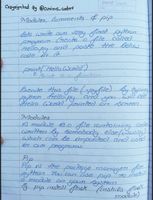 Copyrighted by @Coding_coders
Modules, Comments & pip
Lets write our very first python
program. Create a file called
hello.py and paste the below
code in it
print("Hello World")
Execute this file (.py file) by typing
python hello.py and you will see
Hello World printed on screen
Modules
A module is a file containing code
written by somebody else (usually)
which can be imported and used
in our programs
Pip
Pip is the package manager for
python. You can use pip to install
a module on your system
pip install flask